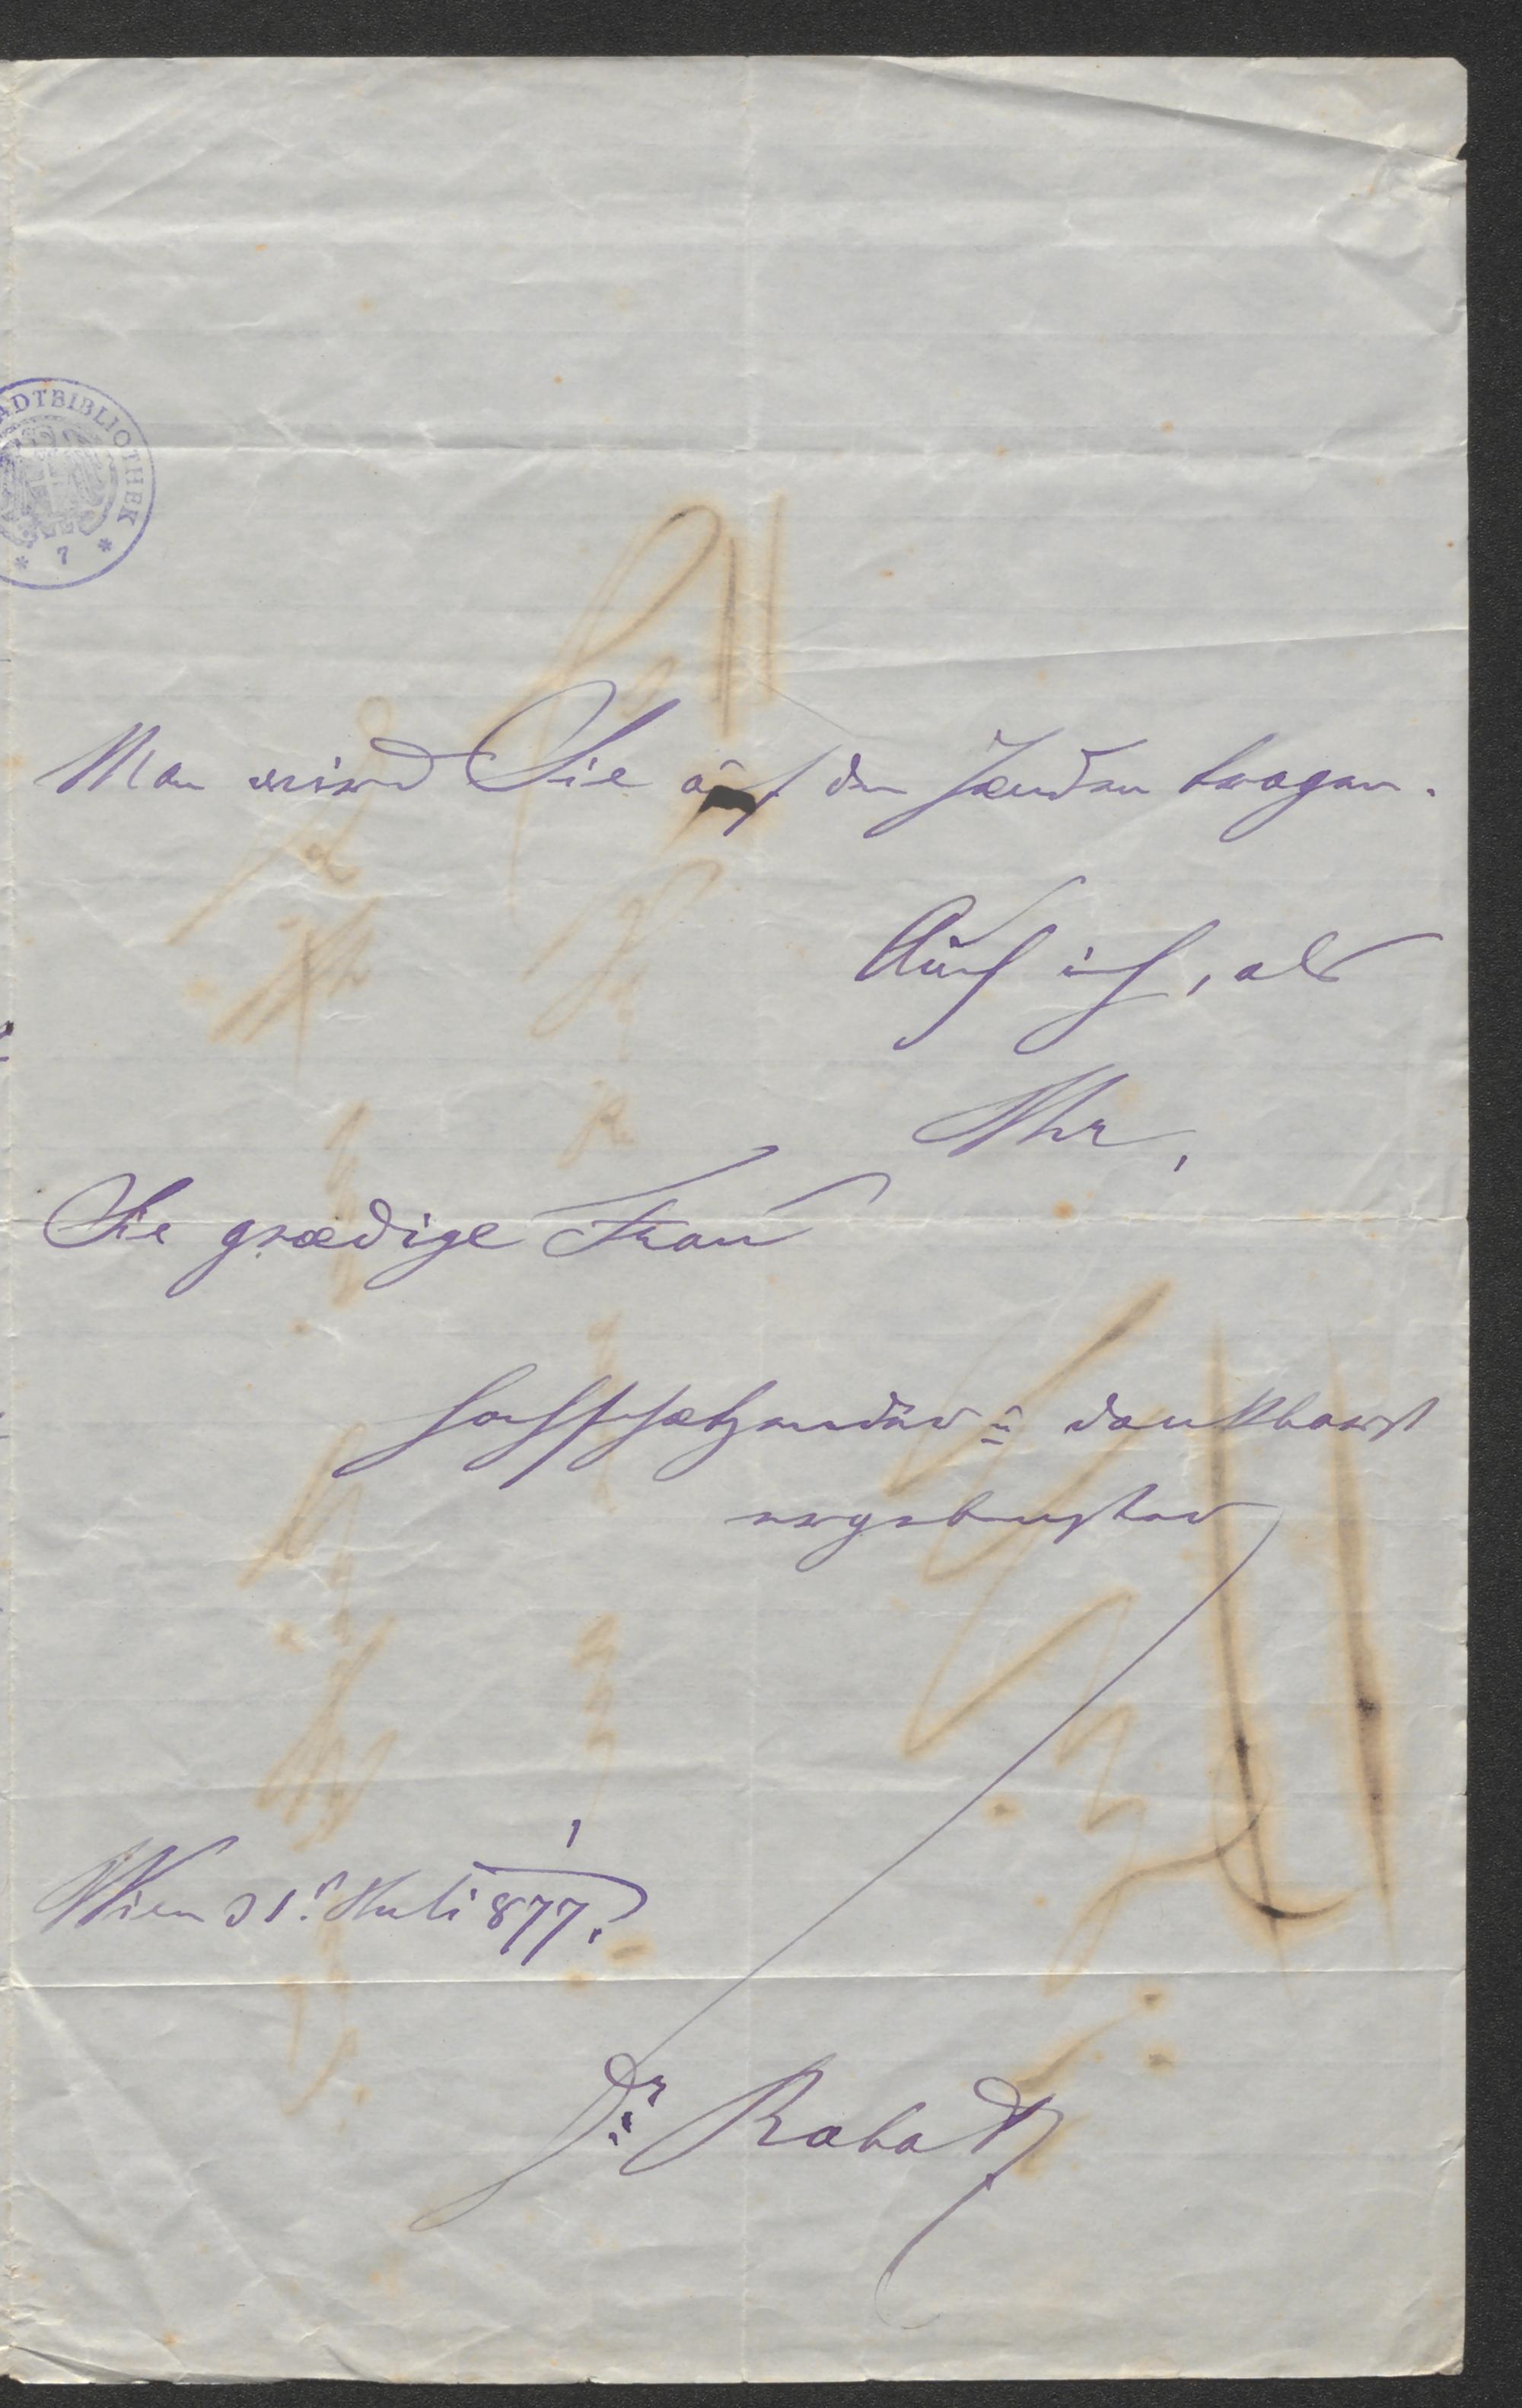 ADTBIBLIOTHEK
* 7 *
Man wird Sie auf den Händen tragen.
Auch ich, als
Ihr,
Sie gnædige Frau
hochschätzender u dankbarst
ergebenster
Wien 31. Juli 1877.
Dr. Rabatz